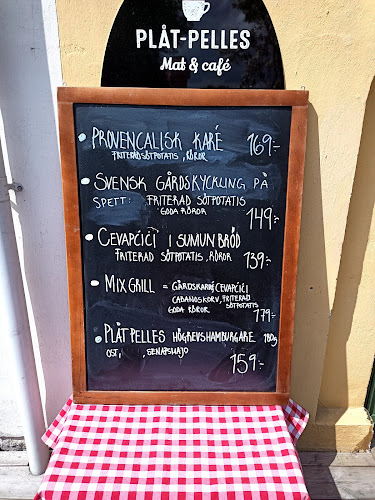 PLÅT-PELLES
Mat & café
PROVENCALISK KARÉ 169:-
FRITERAD SÖTPOTATIS, RÖROR
SVENSK GÅRDSKYCKLING PÅ
SPETT: FRITERAD SÖTPOTATIS
GODA RÖROR 149:-
CEVAPČIČI I SUMUN BRÖD
FRITERAD SÖTPOTATIS, RÖROR 139:-
MIX GRILL = GÅRDSKARRÉ, CEVAPČIČI
CABANOSKORV, FRITERAD
SÖTPOTATIS
GODA RÖROR 179:-
PLÅTPELLES HÖGREVSHAMBURGARE 180g
OST, , SENAPSMAJO
159:-